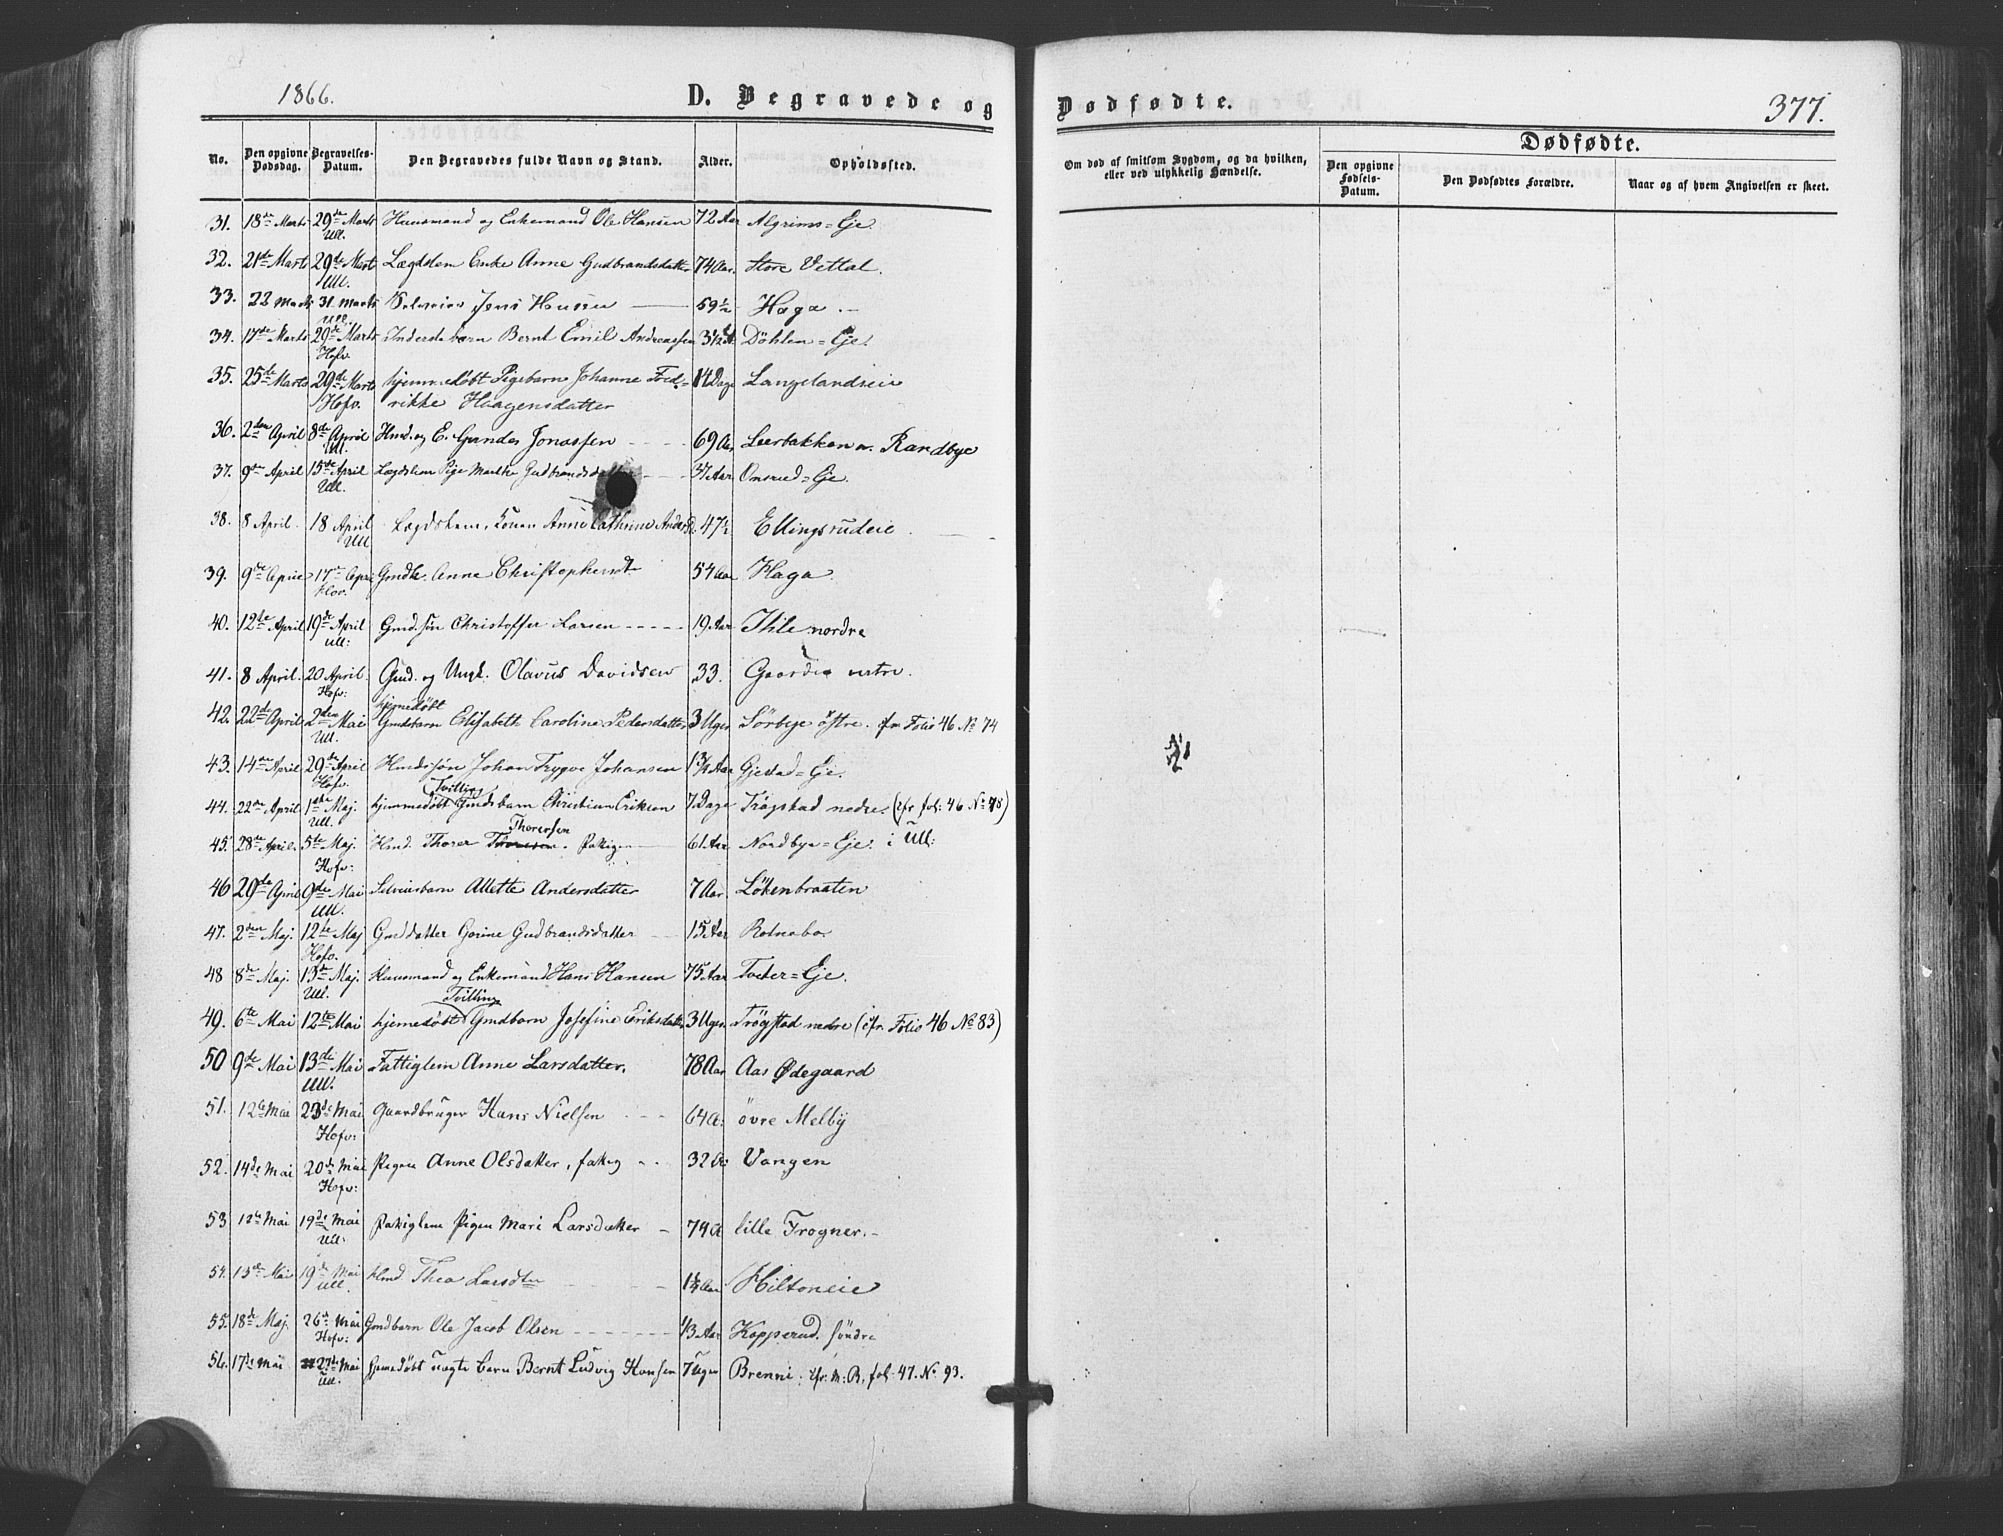 1866.
D. Begravede og
Dødfødte.
377.
No.
Den opgivne Dødsdag.
Begravelses-Datum.
Den Begravedes fulde Navn og Stand.
Alder.
Opholdssted.
Om død af smitsom Sygdom, og da hvilken, eller ved ulykkelig Hændelse.
Dødfødte.
Den opgivne Fødsels-Datum.
Den Dødfødtes Forældre.
Naar og af hvem Angivelsen er skeet.
31. 18de Marts 29de Marts Huusmand og Enkemand Ole Hansen 72 Aar Algrims=Eje.
Ull.
32. 21de Marts 29de Mart Lægdslem Enke Anne Gudbrandsdatter 74 Aar. Store Vettal.
Ull.
33. 22 Marts 31 Marts Selveier Jens Hansen 59½ Haga.
Ull.
34. 17de Marts 29de Marts Inderstebarn Bernt Emil Andreassen Döhlen=Eje.
Hofv.
35. 25de Marts 29de Marts hjemmedøbt Pigebarn Johanne Fred= 14 Dage Langelandseie
Hofv. rikke Haagensdatter
36. 2den April 8de April Hmd. og E. Gunder Jonassen 69 Aar Leerbakken v. Randbye
Ull.
37. 9de April 15de April Lægdslem Pige Marthe Gudbrandsdatter 37 Aar Onsrud=Eje.
Ull.
38. 8 April. 18 April Lægdslem, Konen Anne Cathrine Andersd. 47½ Ellingsrudeie
Ull
39. 9de April 17de April Gmdk. Anne Christophersdt 54 Aar Haga.
Hov.
40. 12te April 19de April Gmd.sön Christoffer Larsen 19 Aar Ihle nordre
Ull:
41. 8 April. 20 April. Gmd. og Ungk. Olavus Davidsen 33. Gaarder vestre.
Hofv:
hjemedøbt
42. 22de April 2den Mai Gmdbarn Elisabeth Caroline Pedersdatter 3 Uger Sörbye östre. cfr Folio 46 No 74
Ull.
43. 14de April 29de April Hmdssön Johan Trygve Johansen Aar Gjestad=Eje.
Hofv. Tvilling
44. 22de April 1ste Maj. hjemmedøbt Gmdsbarn Christian Eriksen 7 Dage Trögstad nedre. (cfr fol: 46 No 78)
Ull. Thorersen
45. 28de April. 5te Maj. Hmd. Thorer Thoresen. Fattig 61 Aar Nordbye=Eje. i Ull:
Hofv:
46 29de April 9de Mai Selveierbarn Alette Andersdatter 7 Aar. Lökenbraaten
Ull.
47. 2den Maj. 12te Maj Gmddatter Gorine Gudbrandsdatter 15 Aar Rotnebo.
Hofv.
48 8de Maj. 13de Maj. Huusmand og Enkemand Hans Hansen 75 Aar Tveter=Eje.
Ull. Tvilling
49. 6te Mai 12te Mai hjemedøbt Gmdbarn Josefine Eriksdatter 3 Uger Trögstad nedre (cfr. Folio 46 No 83)
50 9de Mai 13de Mai Fattiglem Anne Larsdatter. 78 Aar Aas Ødegaard
Ull.
51. 12te Mai 23de Mai Gaardbruger Hans Nielsen 64 A: övre Melby
Hofv:
52. 14de Mai 20de Mai Pigen Anne Olsdatter, fattig 32 A: Vangen
Hofv:
53 12te Mai 19de Mai Fattiglem Pigen Mari Larsdatter 74 A lille Trogner.
Ull:
54. 13de Mai 19de Mai Hmd. Thea Larsdter Aar Hiltoneie
Ull.
55. 18de Maj. 26de Mai Gmdbarn Ole Jacob Olsen Aar Kopperud. söndre
Hofv:
56. 17de Mai 27de Mai hjemedöbt uægte barn Bernt Ludvig Hansen 7 Uger Brenni. cfr. M: B. fol: 47. No 93.
Ull.